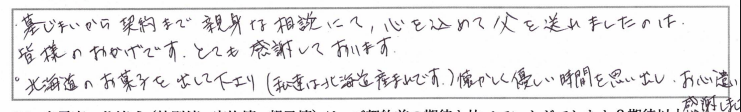 ・墓じまいから契約まで親身な相談にて、心を込めて父を送れましたのは、
皆様のおかげです。とても感謝しております。
。北海道のお菓子を出して下さり(私達は北海道産まれです。)懐かしく優しい時間を思い出し、お心遣い
感謝しており